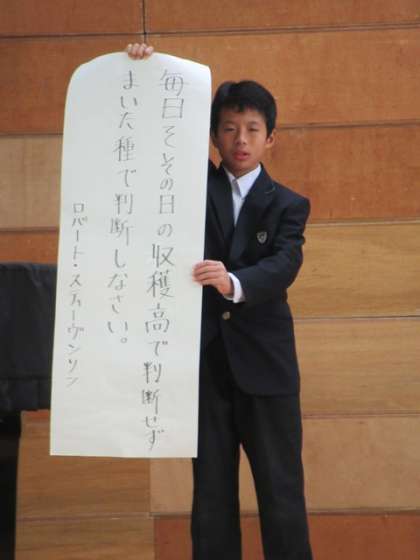 毎日をその日の収穫高で判断せず
まいた種で判断しなさい。
ロバート・スティーヴンソン